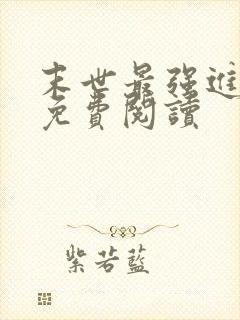 末世最强進
免費閱讀
紫若藍